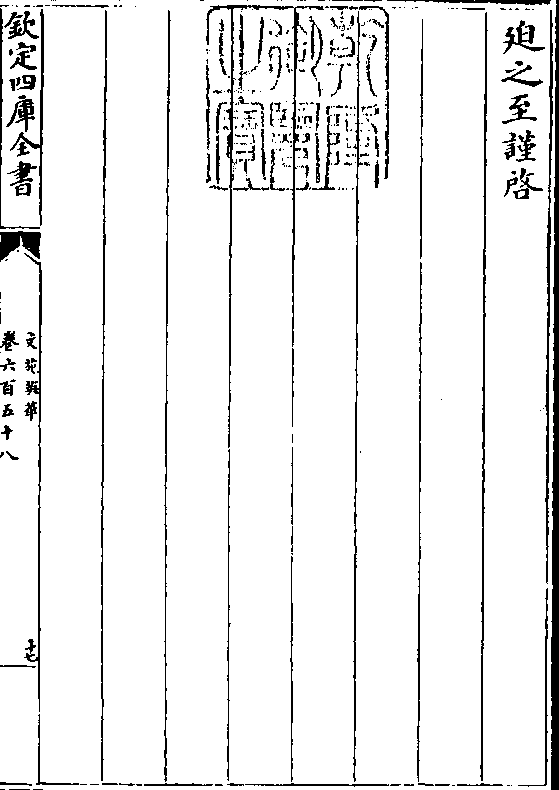 迫之至謹啓
乾隆御覽之寳
欽定四庫全書
文苑英華
卷六百五十八
十七